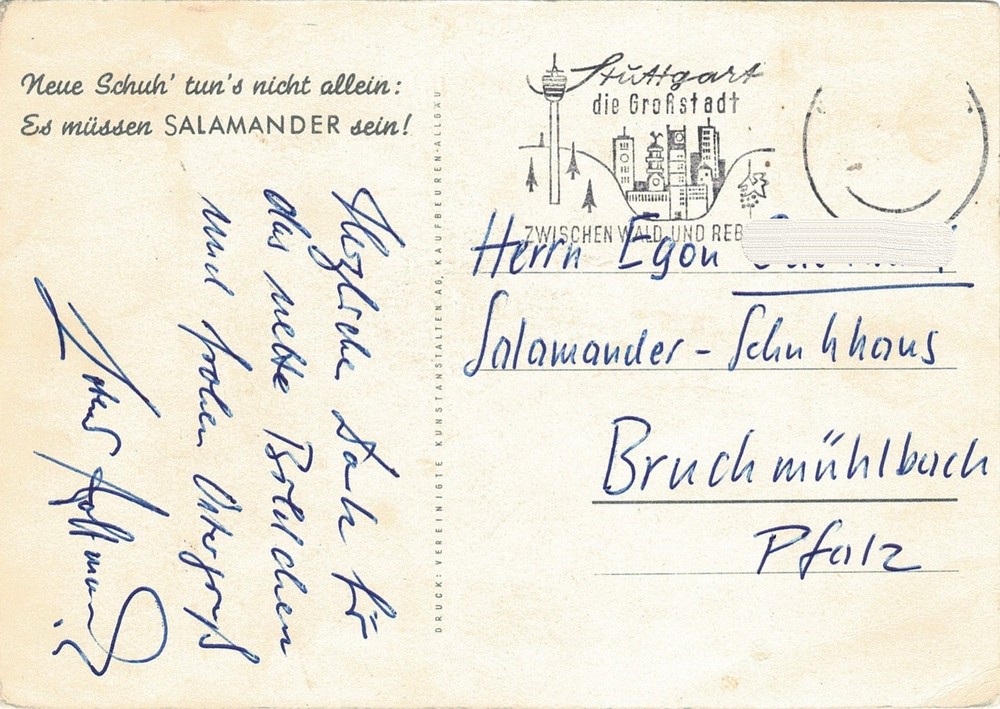 Neue Schuh' tun's nicht allein:
Es müssen SALAMANDER sein!
Herzlichen Dank für
das nette Bildchen
und frohen Ostergruß
DRUCK: VEREINIGTE KUNSTANSTALTEN AG, KAUFBEUREN-ALLGÄU
Stuttgart
die Großstadt
ZWISCHEN WALD UND REB
Herrn Egon
Salamander-Schuhhaus
Bruchmühlbach
Pfalz